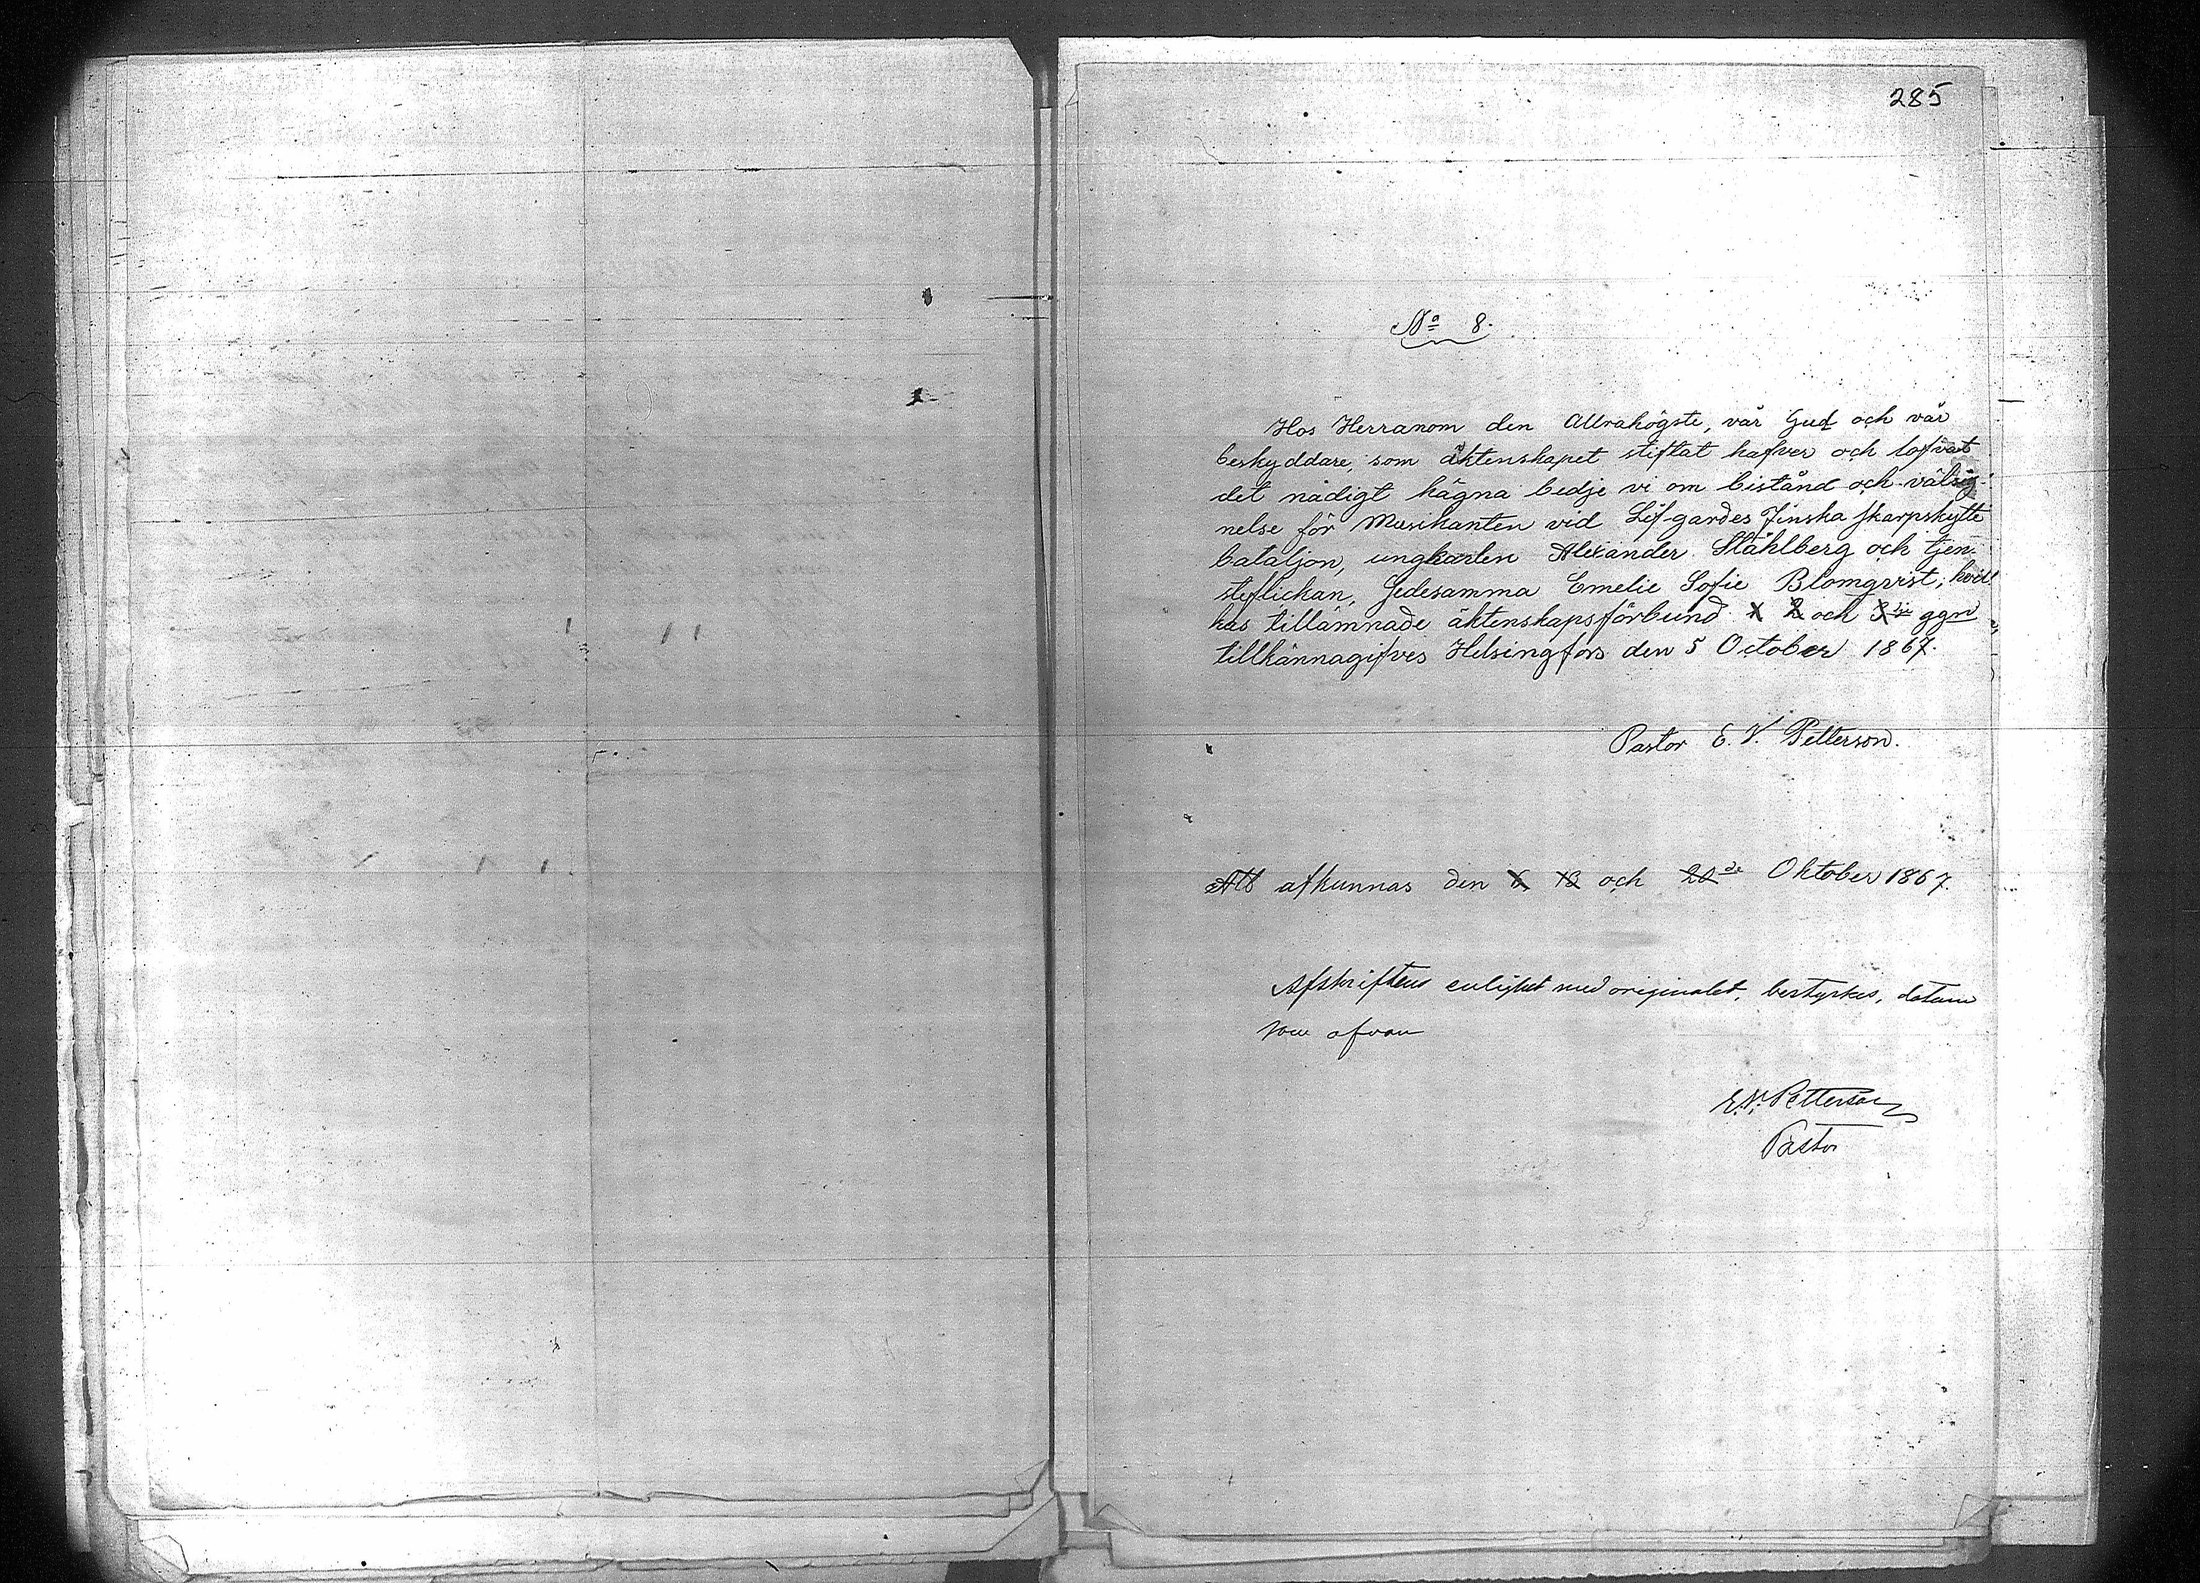 285
No 8.
Hos Herranom den Allrahögste, vår Gud och vår
beskyddare, som äktenskapet stiftat hafver och lofvat
det nådigt hägna bedje vi om bistånd och välsig-
nelse för Musikanten vid Lif-gardes Finska Skarpskytte
bataljon, ungkarlen Alexander Ståhlberg och tjen-
steflickan, Gedesamma Emelie Sofie Blomqvist; hvil-
kas tillämnade äktenskapsförbund 1 2 och 3dje ggn
tillkännagifves Helsingfors den 5 October 1867.
Pastor E. V. Petterson.
Att afkunnas den 6 13 och 20de Oktober 1867.
Afskriftens enlighet med originalet, bestyrkes, datum
som ofvan
E.V. Petterson
Pastor